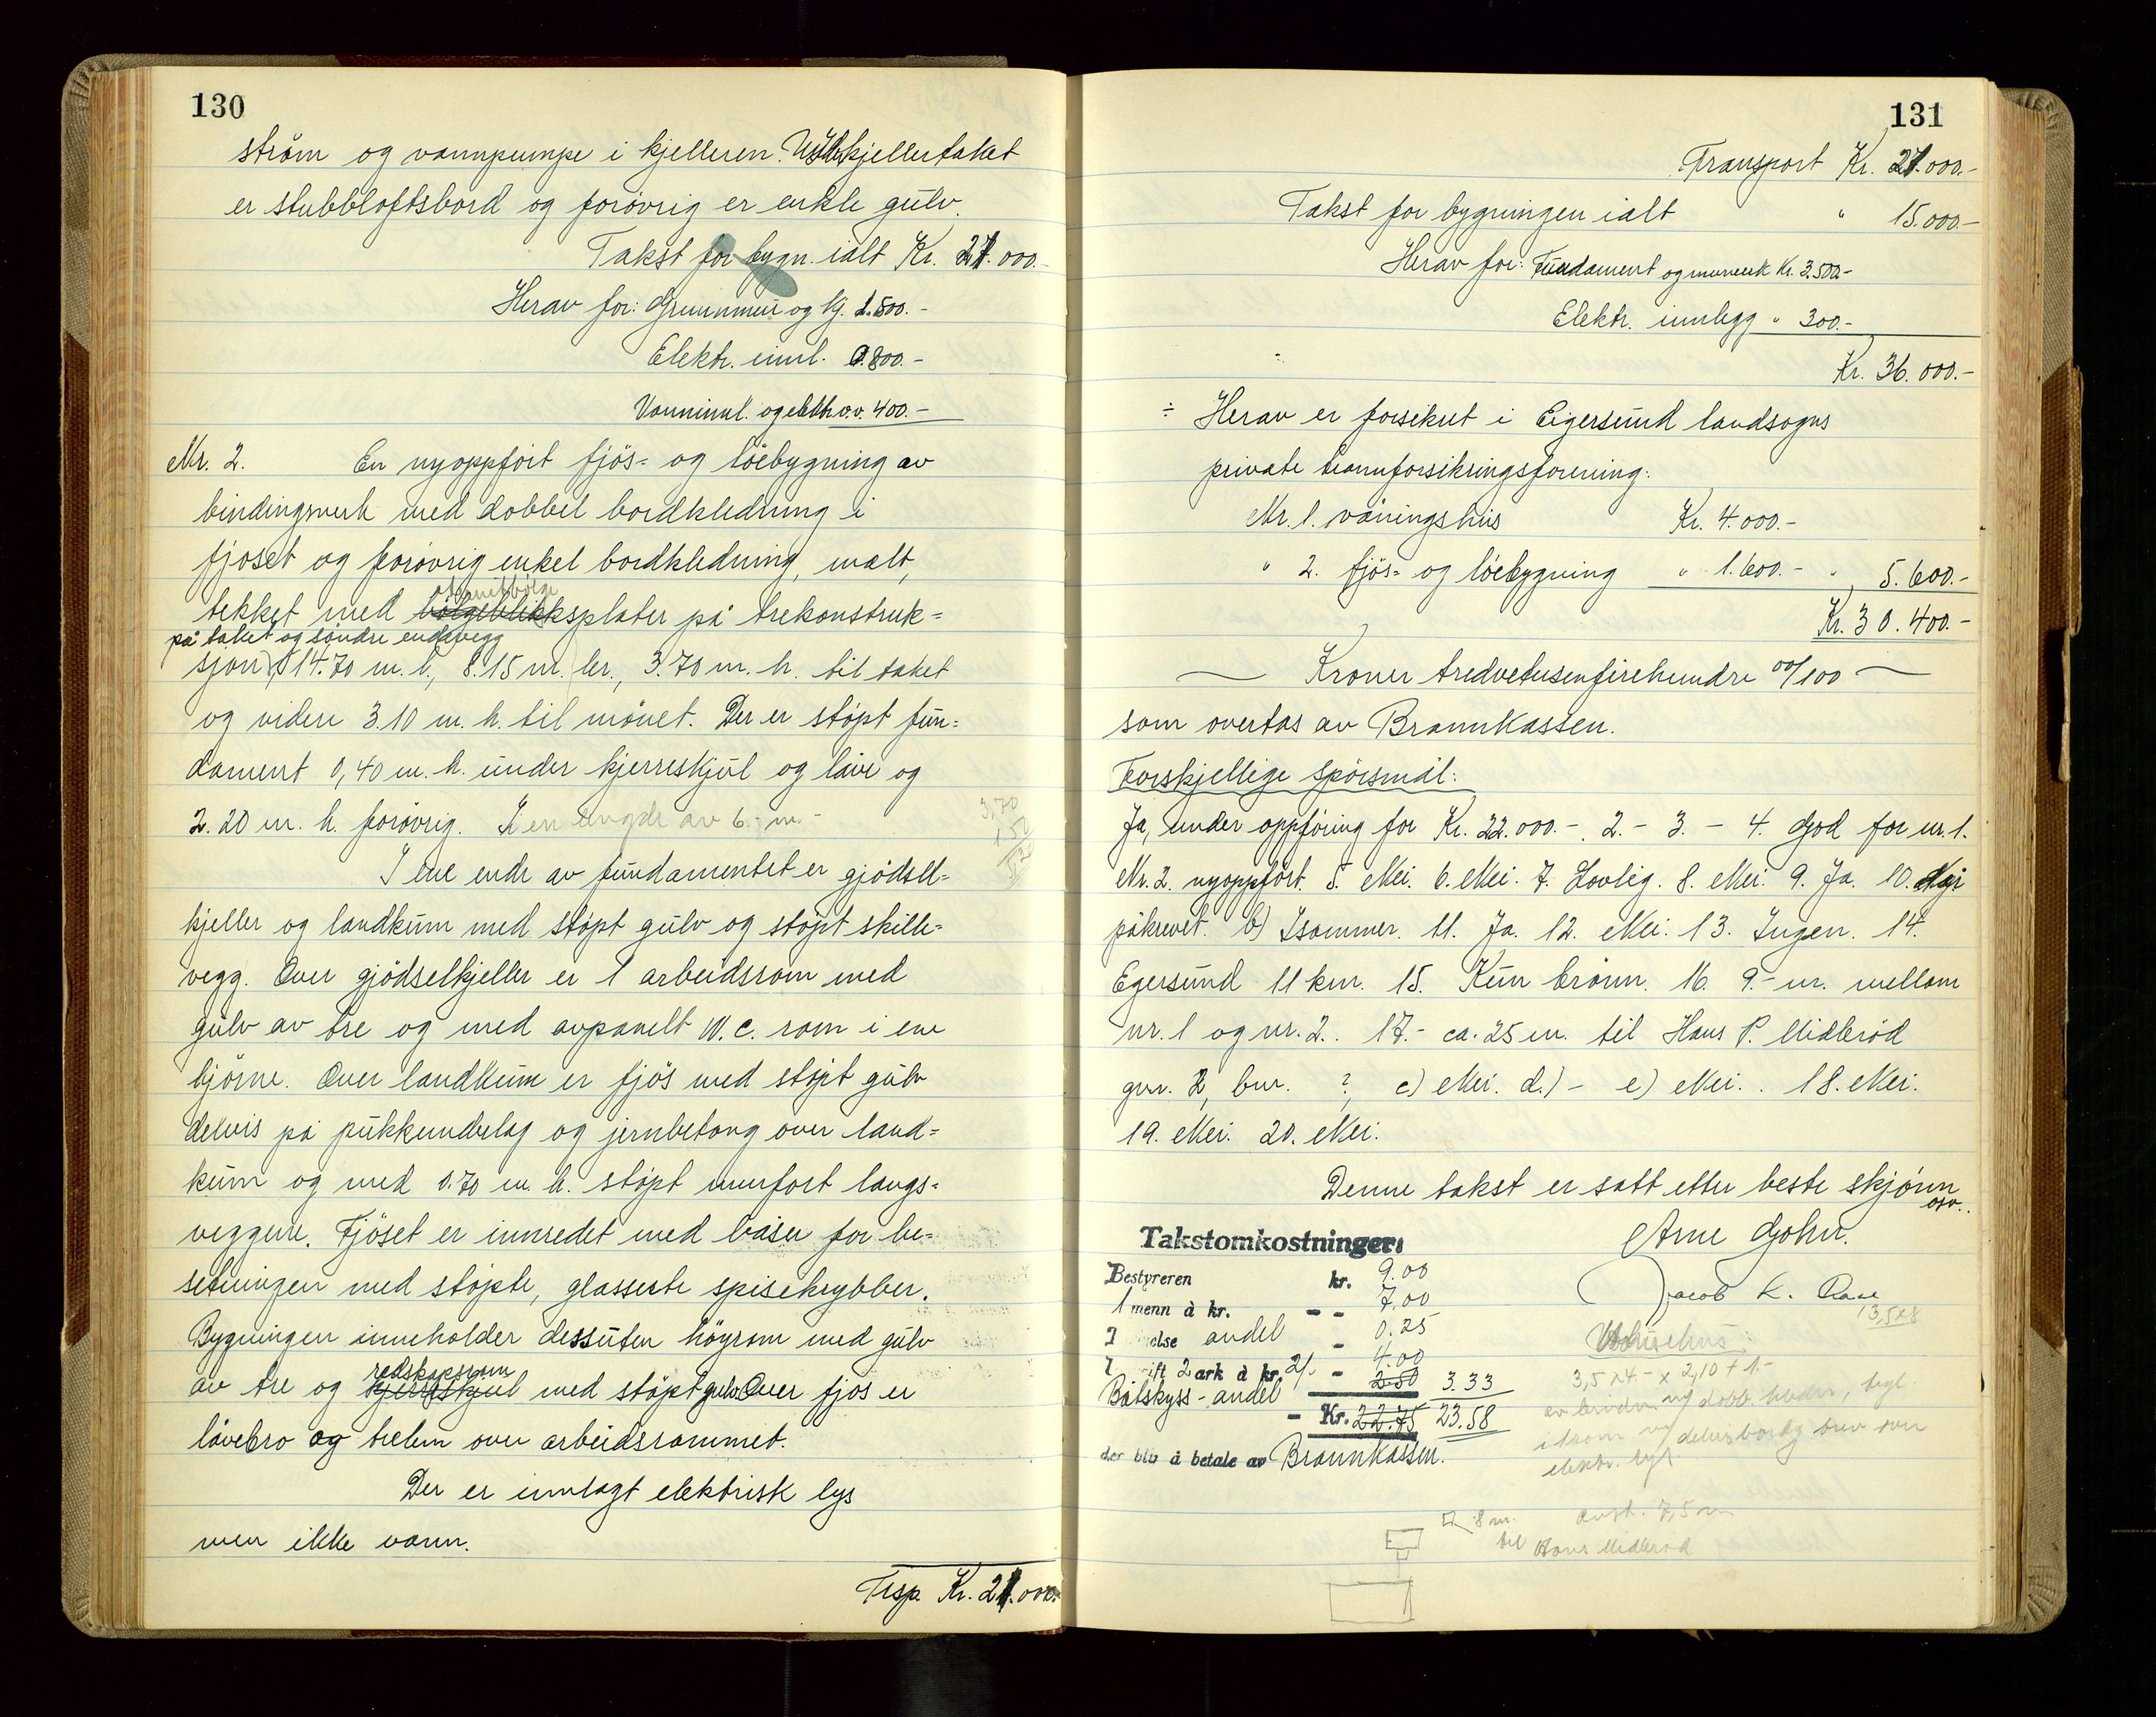 130
ström og vannpumpe i kjelleren. Under kjellertaket
er stubbloftsbord og forøvrig er enkle gulv.
Takst for bygn. ialt Kr. 21.000.-
Herav for: Grunnmur og kj. 1.500.-
Elektr. innl. 0.800.-
Vanninnl. og elektr. v.v. 400.-
Nr. 2. En nyoppfört fjös- og löebygning av
bindingsverk med dobbel bordkledning i
fjoset og forövrig enkel bordkledning, malt,
eternitbölge
tekket med bölgeblikksplater på trekonstruk=
på taket og söndre endevegg
sjon, 14.70 m. l., 8.15 m. br., 3.70 m. h. til taket
og videre 3.10 m. h. til mönet. Der er stöpt fun=
dament 0,40 m. h. under kjerreskjul og låve og
2.20 m. h. forövrig. I en lengde av 6.- m.-
3,70
1 50
I ene ende av fundamentet er gjödsel=
kjeller og landkum med stöpt gulv og stöpt skille=
vegg. Over gjödselkjeller er 1 arbeidsrom med
gulv av tre og med avpanelt W.C. rom i ene
hjörne. Over landkum er fjös med stöpt gulv
delvis på pukkunderlag og jernbetong over land=
kum og med 0.70 m. h. stöpt murfort langs=
veggene. Fjöset er innredet med båser for be=
setningen med stöpte, glasserte spisekrybber.
Bygningen inneholder dessuten höyrom med gulv
redskapsrom
av tre og kjerreskjul med stöpt gulv. Over fjös er
låvebro og trelem over arbeidsrommet.
Der er innlagt elektrisk lys
men ikke vann.
Trsp. Kr. 21.000.-
131
Transport Kr. 21.000.-
Takst for bygningen ialt " 15.000.-
Herav for: Fundament og murverk Kr. 3.500.-
Elektr. innlegg " 300.-
Kr. 36.000.-
÷ Herav er forsikret i Eigersund landsogns
private brannforsikringsforening:
Nr. 1. våningshus Kr. 4.000.-
" 2. fjös- og löebygning " 1.600.- " 5.600.-
Kr. 30.400.-
Kroner tredvetusenfirehundre 00/100
som overtas av Brannkassen.
Forskjellige spörsmål:
Ja, under oppföring for Kr. 22.000.-. 2.- 3.- 4. God for nr. 1.
Nr. 2. nyoppfört. 5. Nei. 6. Nei. 7. Lovlig. 8. Nei. 9. Ja. 10. Nei
påkrevet. b) Isommer. 11. Ja. 12. Nei. 13. Ingen. 14.
Egersund 11 km. 15. Kun brönn. 16. 9.- m. mellom
nr. 1 og nr. 2.. 17.- ca. 25 m. til Hans P. Midbröd
gnr. 2, bnr. ?, c) Nei. d.) - e) Nei.. 18. Nei.
19. Nei. 20. Nei.
Denne takst er satt etter beste skjönn
osv..
Arne Gohn.
Jacob K.
13,5x8
Takstomkostninger:
Bestyreren kr. 9.00
1 menn à kr. - - 7.00
andel - 0.25
2 ark à kr. 2/- - 4.00
Båtskyss - andel 2.50 3.33
- Kr. 22.75 23.58
der bliv å betale av Brannkassen.
3,5 x 4.- x 2,10 + 1.-
elektr. lys
8 m. avst. 7,5 m
til Hans Midbröd